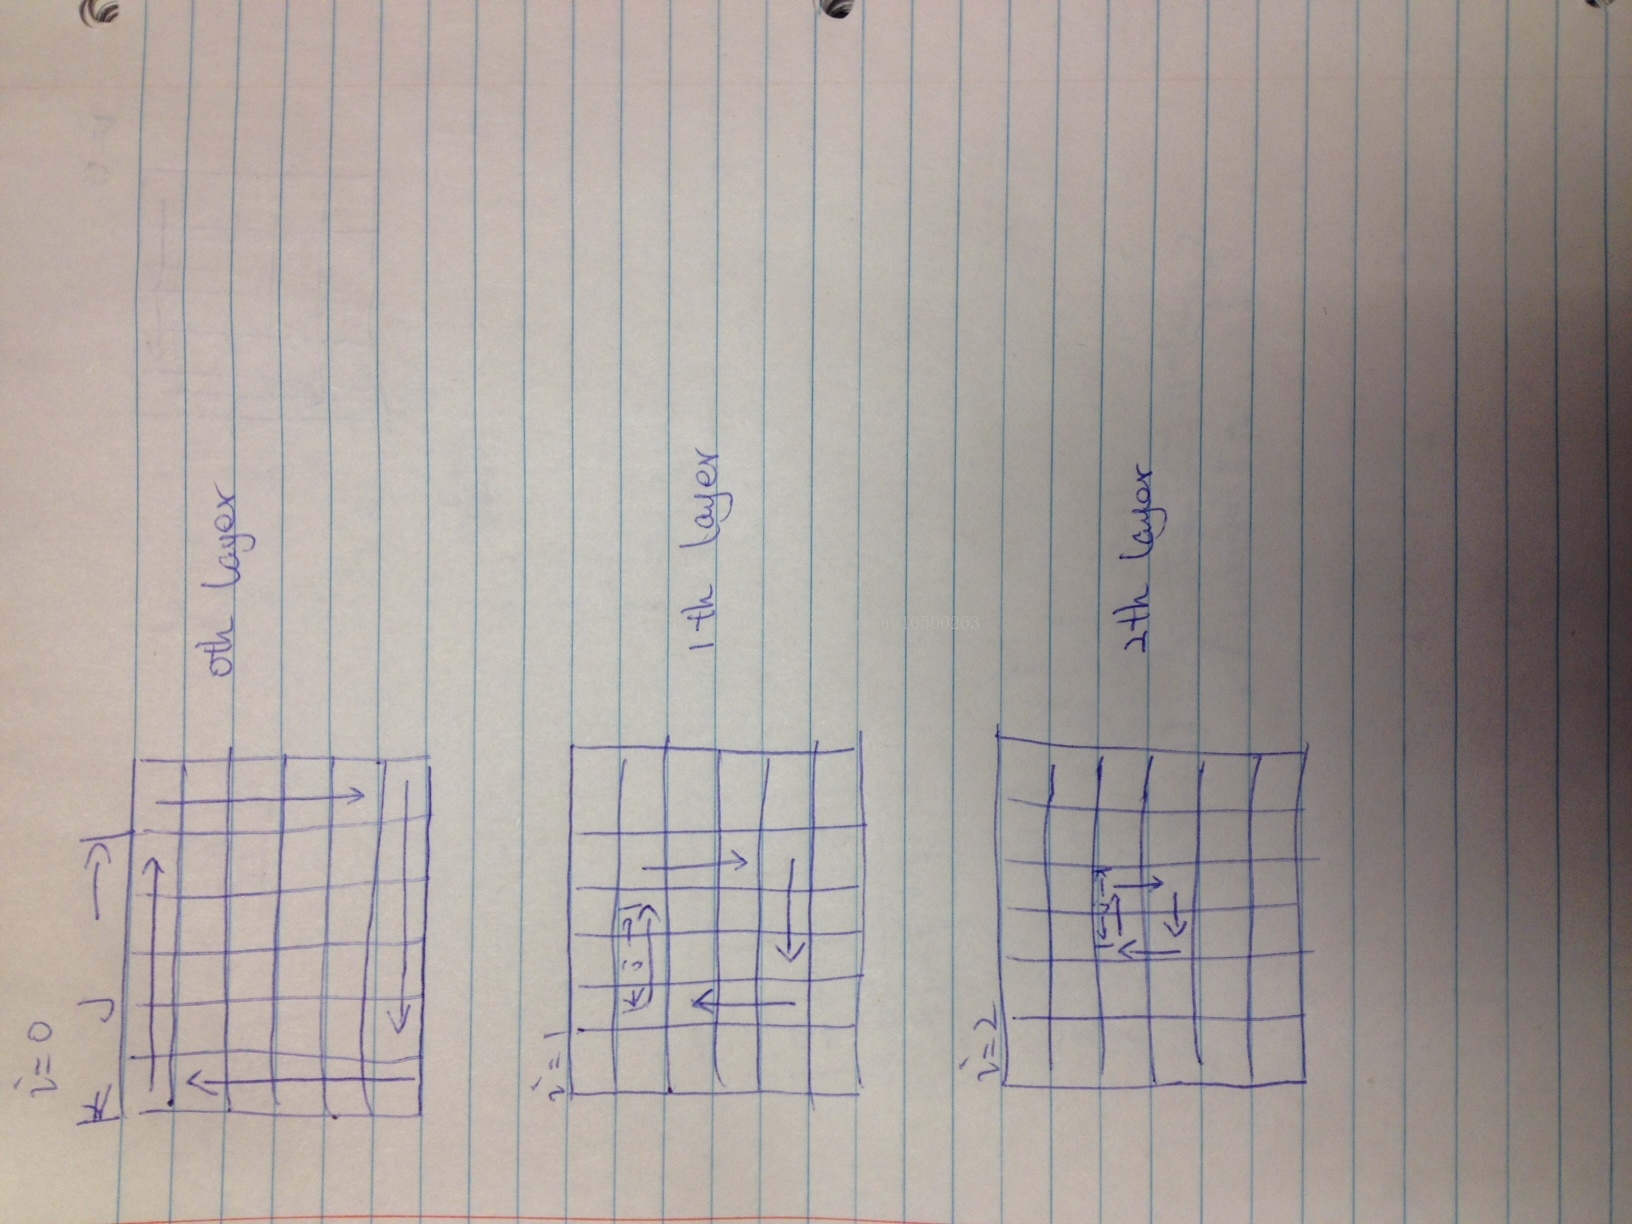 i=0
J
0th layer
i=1
j
1th layer
i=2
j
2th layer